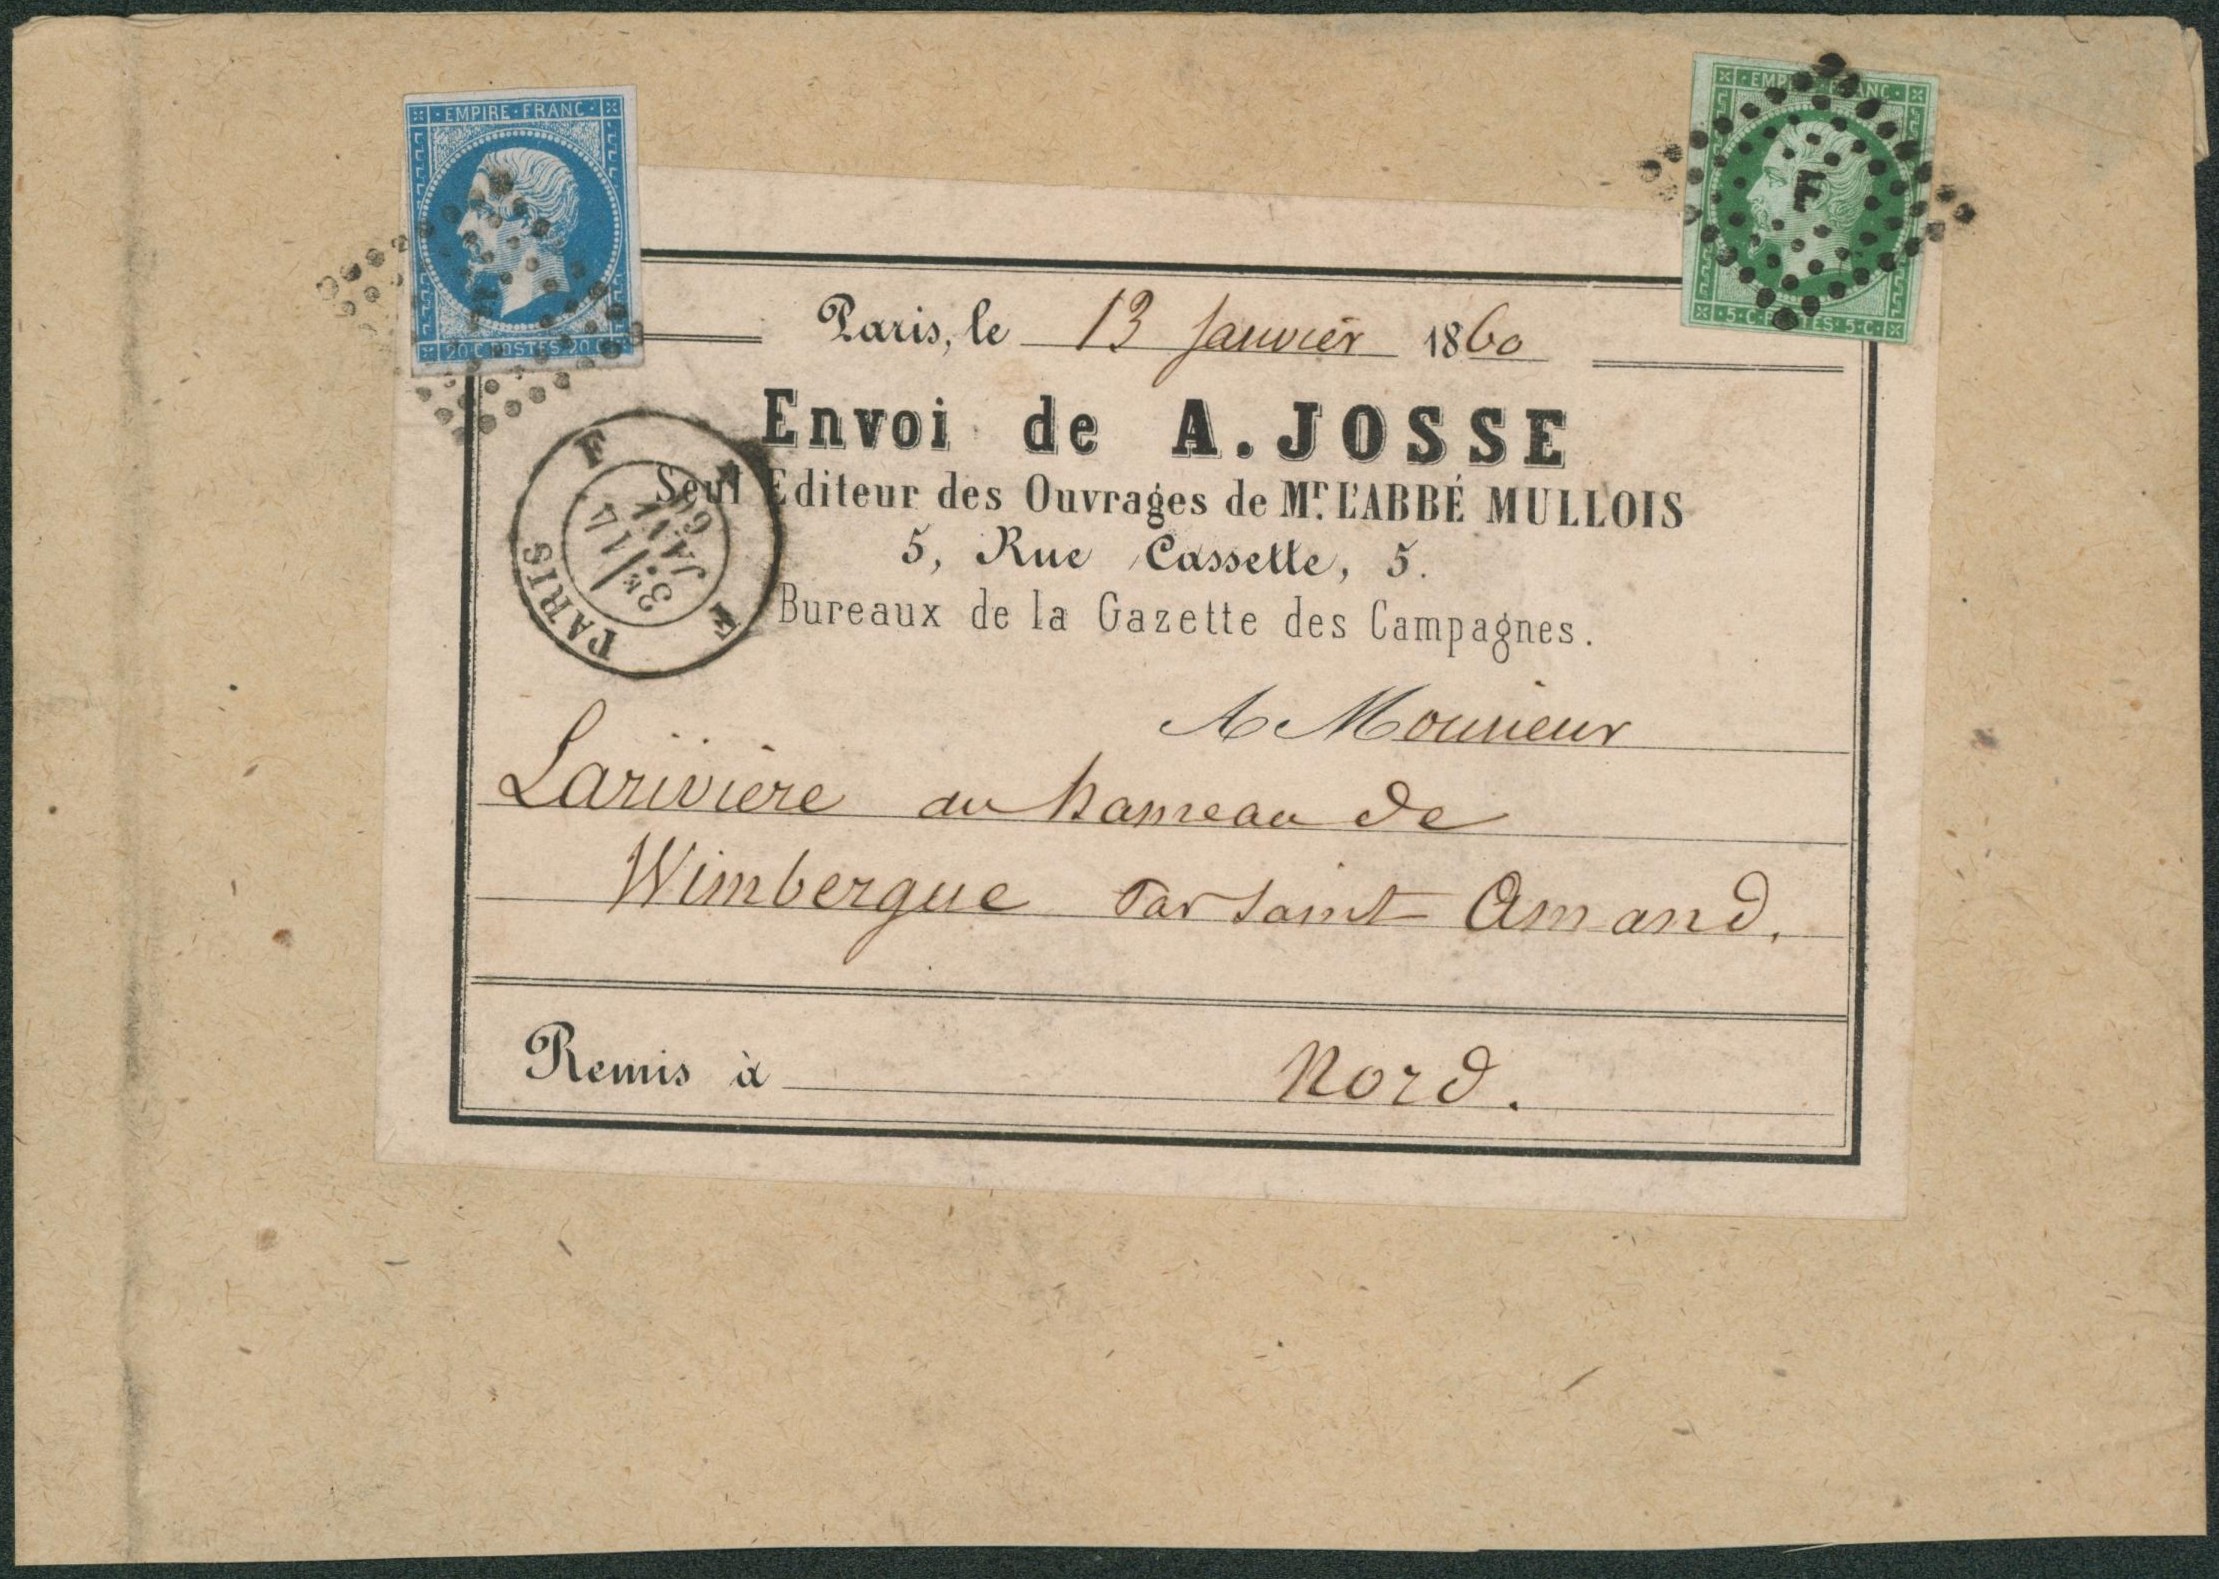 EMPIRE · FRANC ·
20 · C · POSTES · 20 · C ·
EMPIRE · FRANC ·
· 5 · C · POSTES · 5 · C ·
F
Paris, le 13 Janvier 1860
Envoi de A. JOSSE
Seul Editeur des Ouvrages de Mr. L'ABBÉ MULLOIS
5, Rue Cassette, 5.
Bureaux de la Gazette des Campagnes.
PARIS
F F F
3E
14
JANV
60
A Monsieur
Larivière au hameau de
Wimbergue Par Saint Amand.
Remis à Nord.